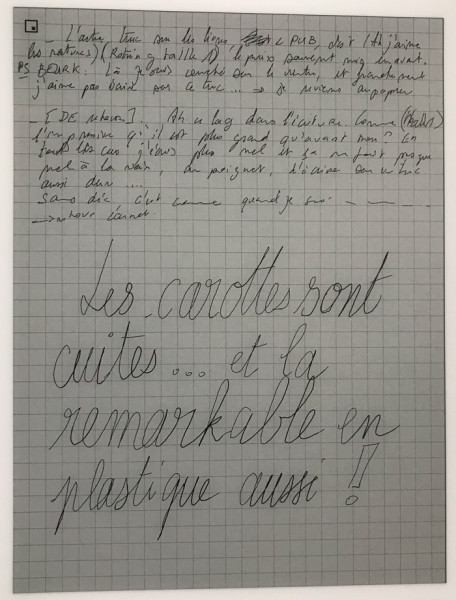 - L'autre truc sur les lignes, < PUB, dsit (Ah j'aime
les ratures) (Rotring taille 1), le
PS BEURK. Là je suis couché sur le ventre, et franchement
j'aime pas bain sur ce truc... → je reviens au papier.
- [DE retour]. Ah ce lag dans l'écriture. Comme
l'impression qu'il est plus grand qu'avant non? En
tout les cas j'écris plus mal et ça m'fait presque
mal à la main, au poignet, d'écrire sur un truc
aussi dur...
Sans dic, c'est comme quand je suis
→ retour carnet.
Les carottes sont
cuites... et la
remarkable en
plastique aussi !